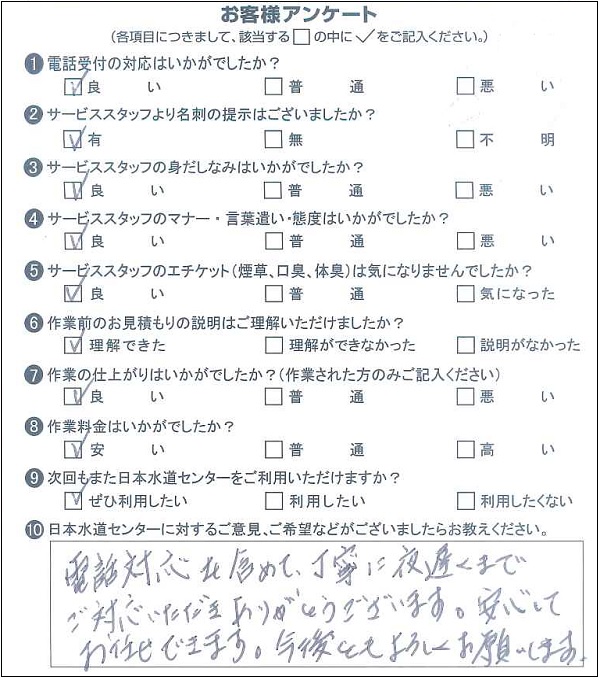 お客様アンケート
(各項目につきまして、該当する□の中に✓をご記入ください。)
❶電話受付の対応はいかがでしたか？
☑良　い　□普　通　□悪　い
❷サービススタッフより名刺の提示はございましたか？
☑有　□無　□不　明
❸サービススタッフの身だしなみはいかがでしたか？
☑良　い　□普　通　□悪　い
❹サービススタッフのマナー・言葉遣い・態度はいかがでしたか？
☑良　い　□普　通　□悪　い
❺サービススタッフのエチケット(煙草、口臭、体臭)は気になりませんでしたか？
☑良　い　□普　通　□気になった
❻作業前のお見積もりの説明はご理解いただけましたか？
☑理解できた　□理解ができなかった　□説明がなかった
❼作業の仕上がりはいかがでしたか？(作業された方のみご記入ください)
☑良　い　□普　通　□悪　い
❽作業料金はいかがでしたか？
☑安　い　□普　通　□高　い
❾次回もまた日本水道センターをご利用いただけますか？
☑ぜひ利用したい　□利用したい　□利用したくない
❿日本水道センターに対するご意見、ご希望などがございましたらお教えください。
電話対応を含めて、丁寧に夜遅くまで
ご対応いただきありがとうございます。安心して
お任せできます。今後ともよろしくお願いします。